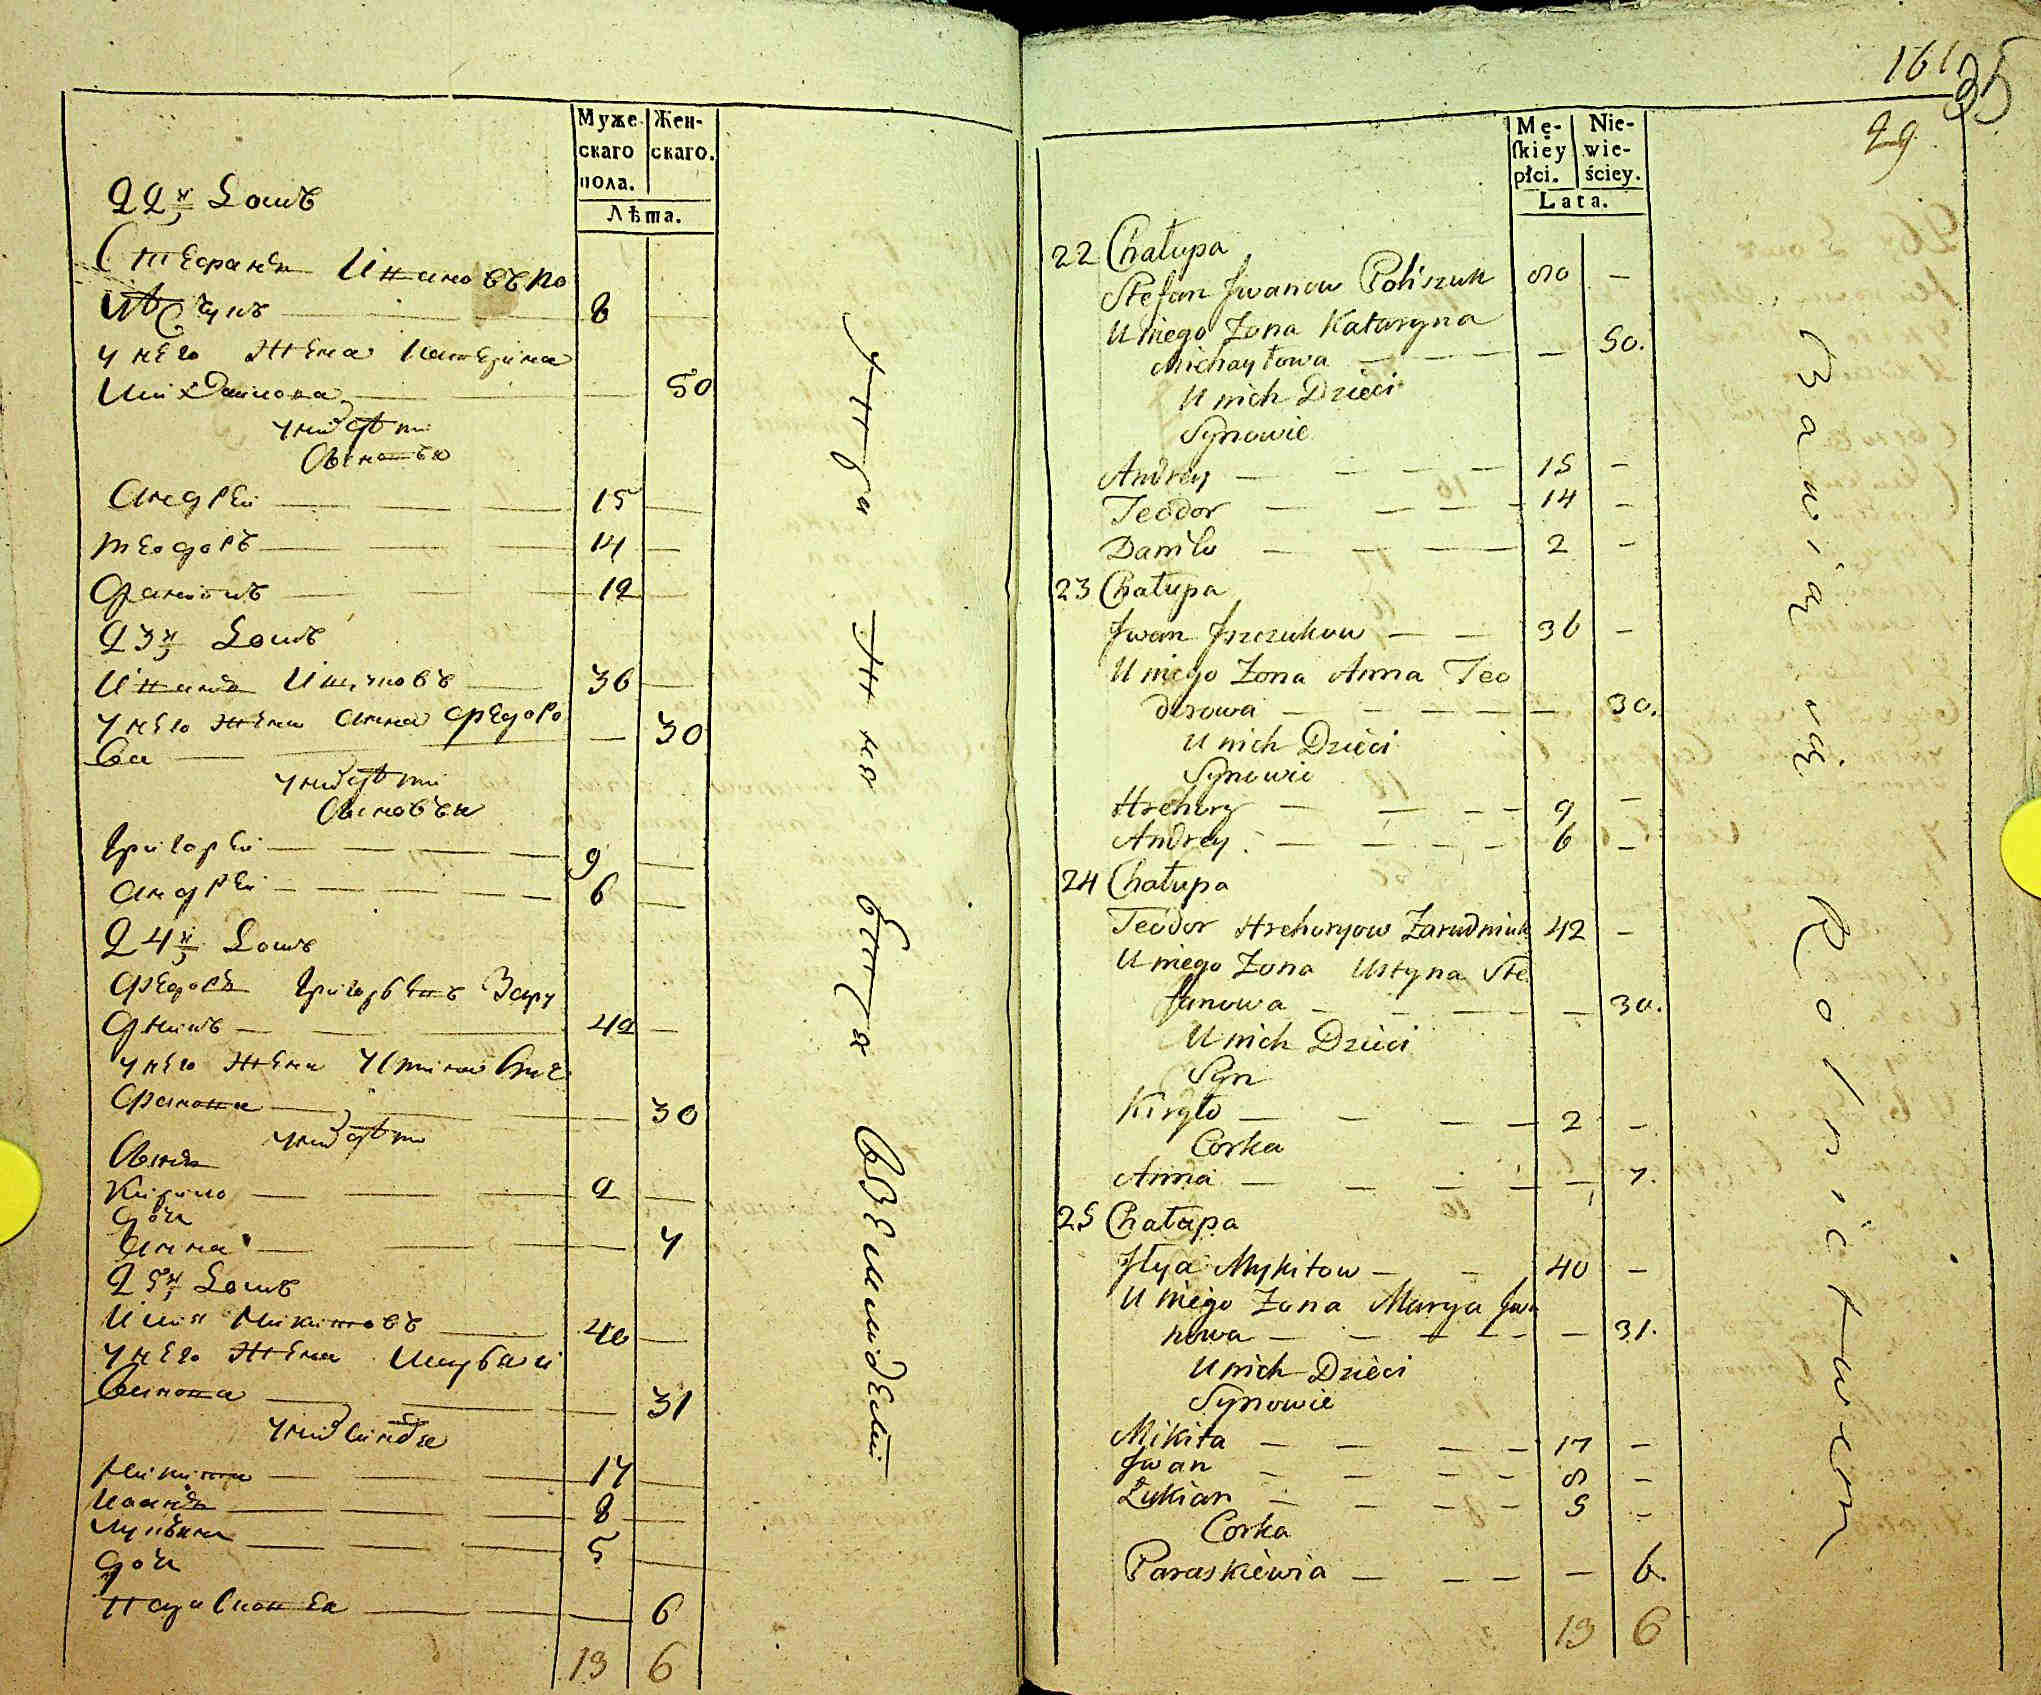 Муже-
скаго
пола.
Жен-
скаго.
Лѣта.
22й Домъ
Стефанъ Ивановъ По
лѣщукъ 8
у него жена Катерина
Михайлова 50
у них дѣти
Сыновья
Андрей 15
Теодоръ 14
12
23й Домъ
Иванъ Ищуковъ 36
у него жена Анна Федоро
ва 30
у них дѣти
Сыновья
Григорей 9
Андрей 6
24й Домъ
Федоръ Григорьевъ Зару
дникъ 42
у него жена Устина Сте
фанова 30
у них дѣти
Сынъ
Кирило 2
дочь
Анна 7
25й Домъ
Илия Микитовъ 40
у него жена Марья И
ванова 31
у них
Микита 17
Иванъ 8
Лукьянъ 5
дочь
Парасковея 6
13 6
жива
ются
въ земледелии
161
35
29
Mę-
skiey
płci.
Nie-
wie-
ściey.
Lata.
22 Chałupa
Stefan Jwanow Poliszuk 80 –
U niego Zona Kataryna
Michayłowa – 50.
U nich Dzieci
Synowie
Andrey 15 –
Teodor 14 –
Daniło 2 –
23 Chałupa
Jwan Jszczukow 36 –
U niego Zona Anna Teo
dorowa – 30.
U nich Dzieci
Synowie
Hrehory 9 –
Andrey 6 –
24 Chałupa
Teodor Hrehoryow Zarudniuk 42 –
U niego Zona Ustyna Ste
fanowa – 30.
U nich Dzieci
Syn
Kiryło 2 –
Corka
Anna – 7.
25 Chałupa
Jłya Mykitow 40 –
U niego Zona Marya Jwa
nowa – 31.
U nich Dzieci
Synowie
Mikita 17 –
Jwan 8 –
Łukian 5 –
Corka
Paraskiewia – 6.
13 6
Bawią się Rolnictwem